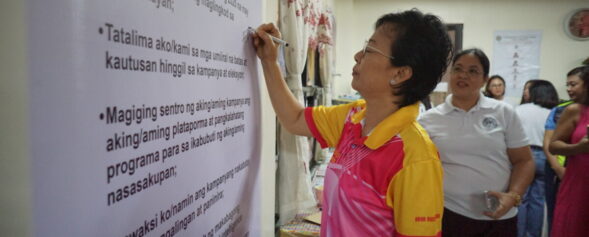 maglingkod sa
• Tatalima ako/kami sa mga umiiral na batas at
kautusan hinggil sa kampanya at eleksyon;
• Magiging sentro ng aking/aming kampanya ang
aking/aming plataporma at pangkalahatang
programa para sa ikabubuti ng aking/aming
nasasakupan;
ko/namin ang kampanyang
at paninira;